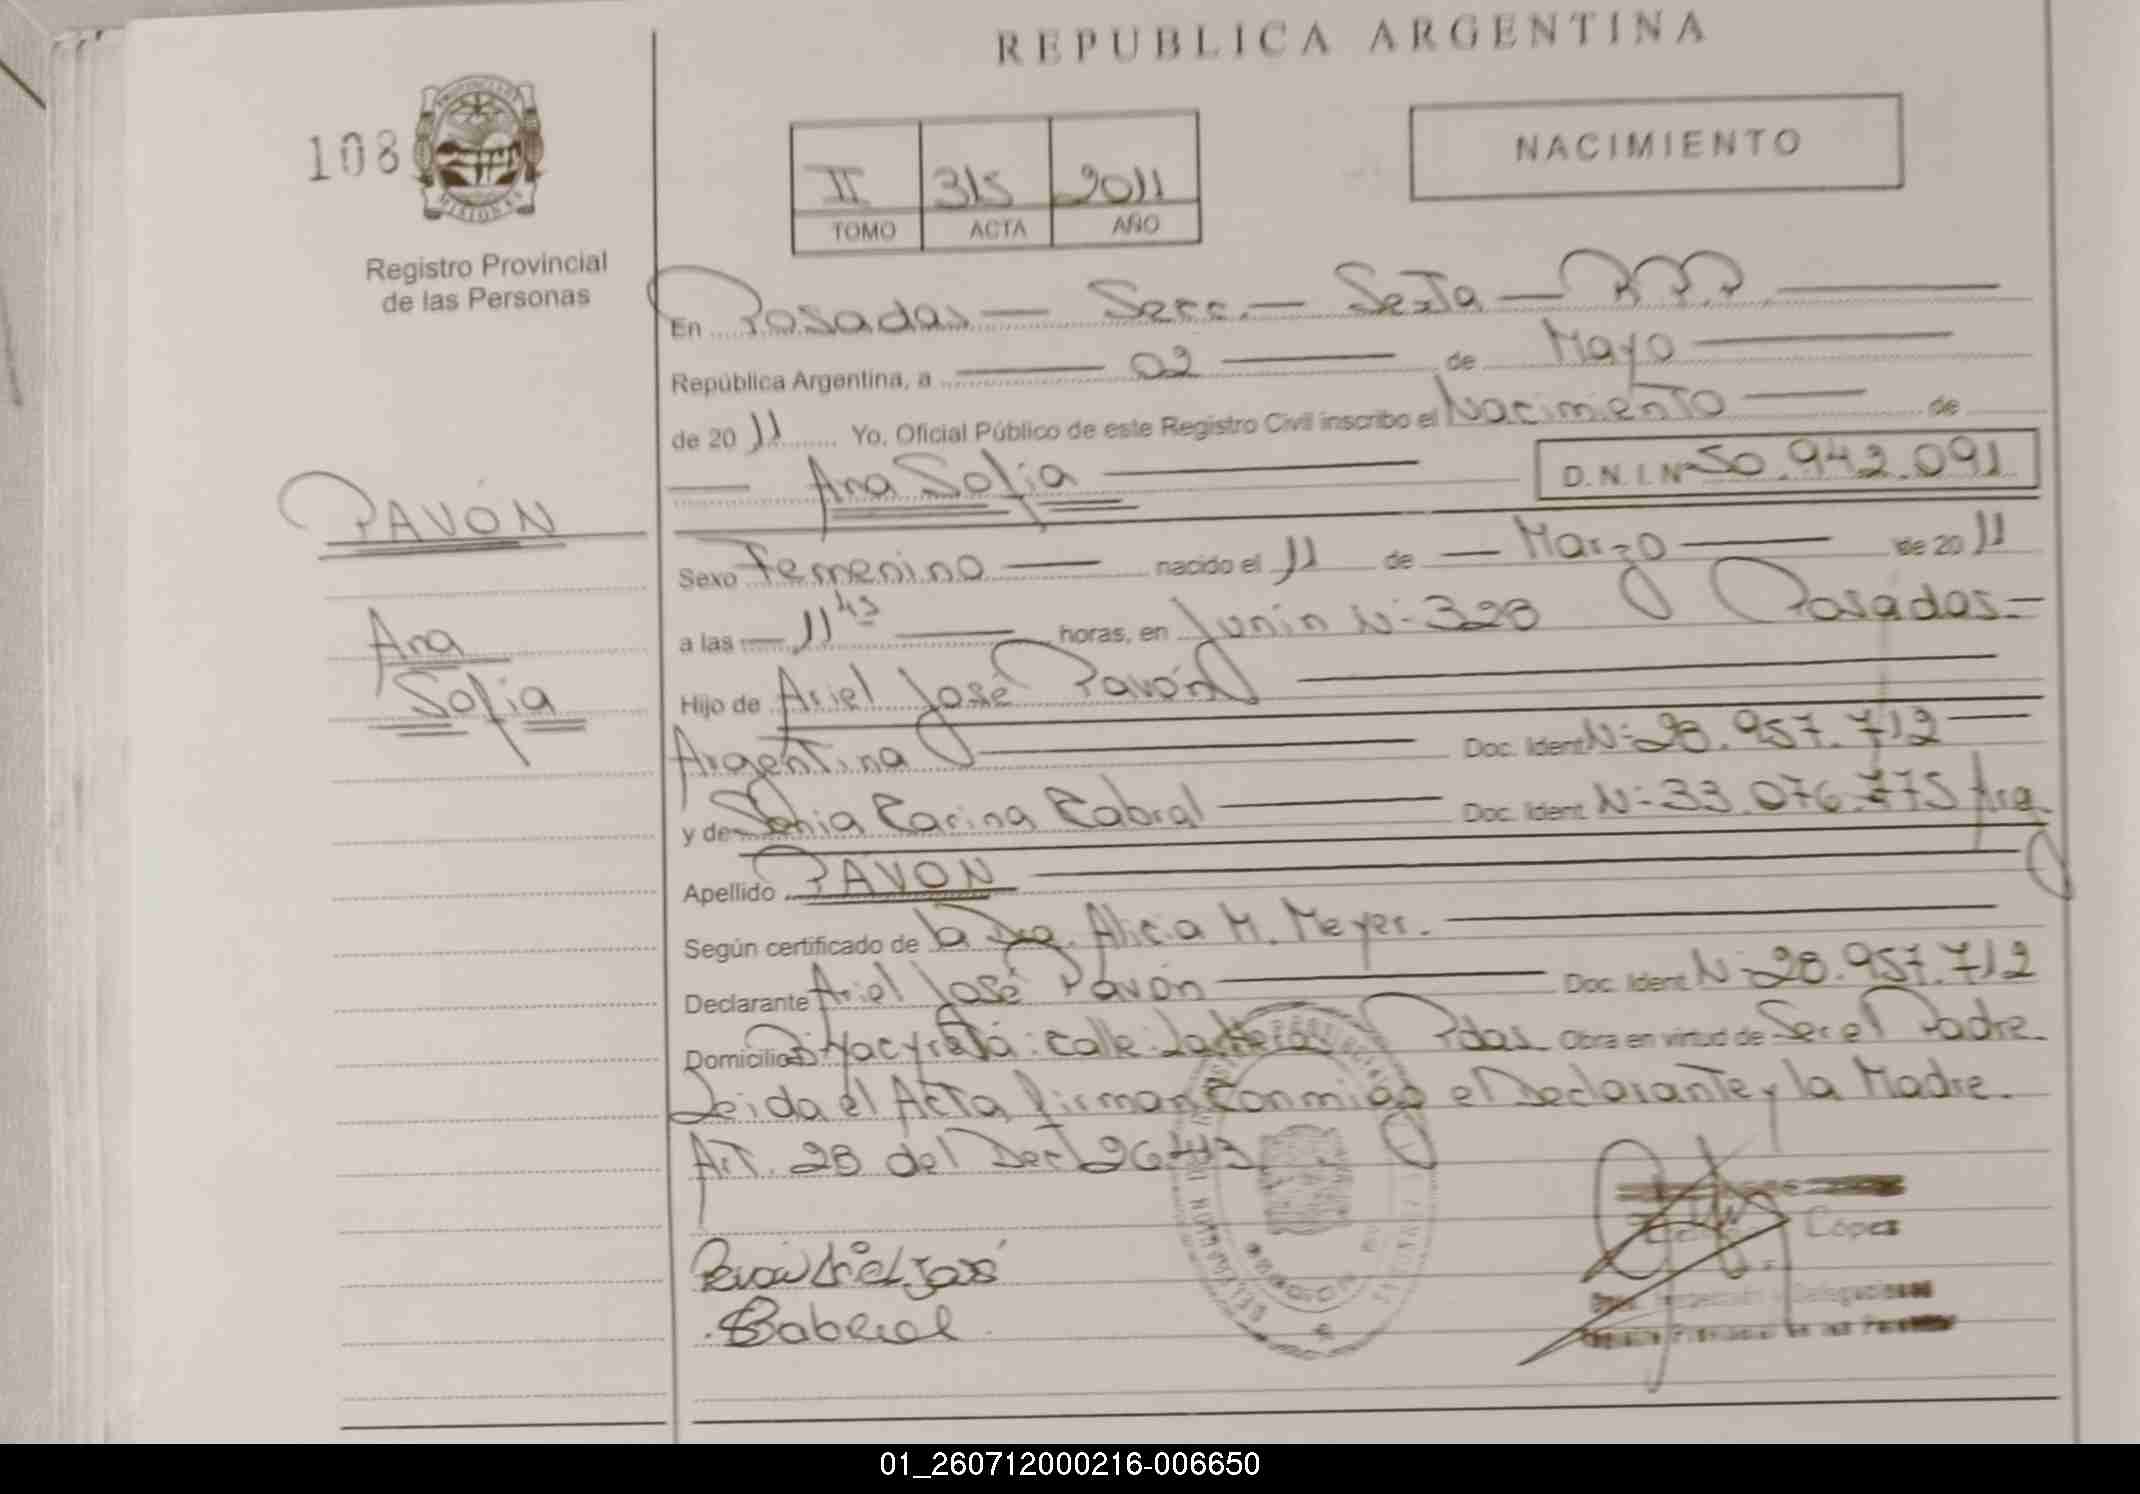 REPUBLICA ARGENTINA
108
PROVINCIA DE
MISIONES
Registro Provincial
de las Personas
II 315 2011
TOMO ACTA AÑO
NACIMIENTO
En Posadas — Secc. — Sexta — R.P.P.
República Argentina, a 02 de Mayo
de 20 11 Yo, Oficial Público de este Registro Civil inscribo el Nacimiento de
Ana Sofia D.N.I. Nº 50.942.091
PAVÓN
Ana
Sofia
Sexo Femenino nacido el 11 de Marzo de 20 11
a las 11 hs horas, en Junin Nº 328 Posadas
Hijo de Ariel José Pavón
Argentina Doc. Ident Nº 28.957.712
y de Sonia Carina Cabral Doc. Ident Nº 33.076.775 Arg.
Apellido PAVON
Según certificado de la Dra. Alicia M. Meyer.
Declarante Ariel José Pavón Doc. Ident Nº 28.957.712
Domicilio Bº Yacyretá: calle: Pdas Obra en virtud de Ser el Padre
Leida el Acta firman Conmigo el Declarante y la Madre.
Art. 28 del Dec 26413
Pavón Ariel José
López
01_260712000216-006650